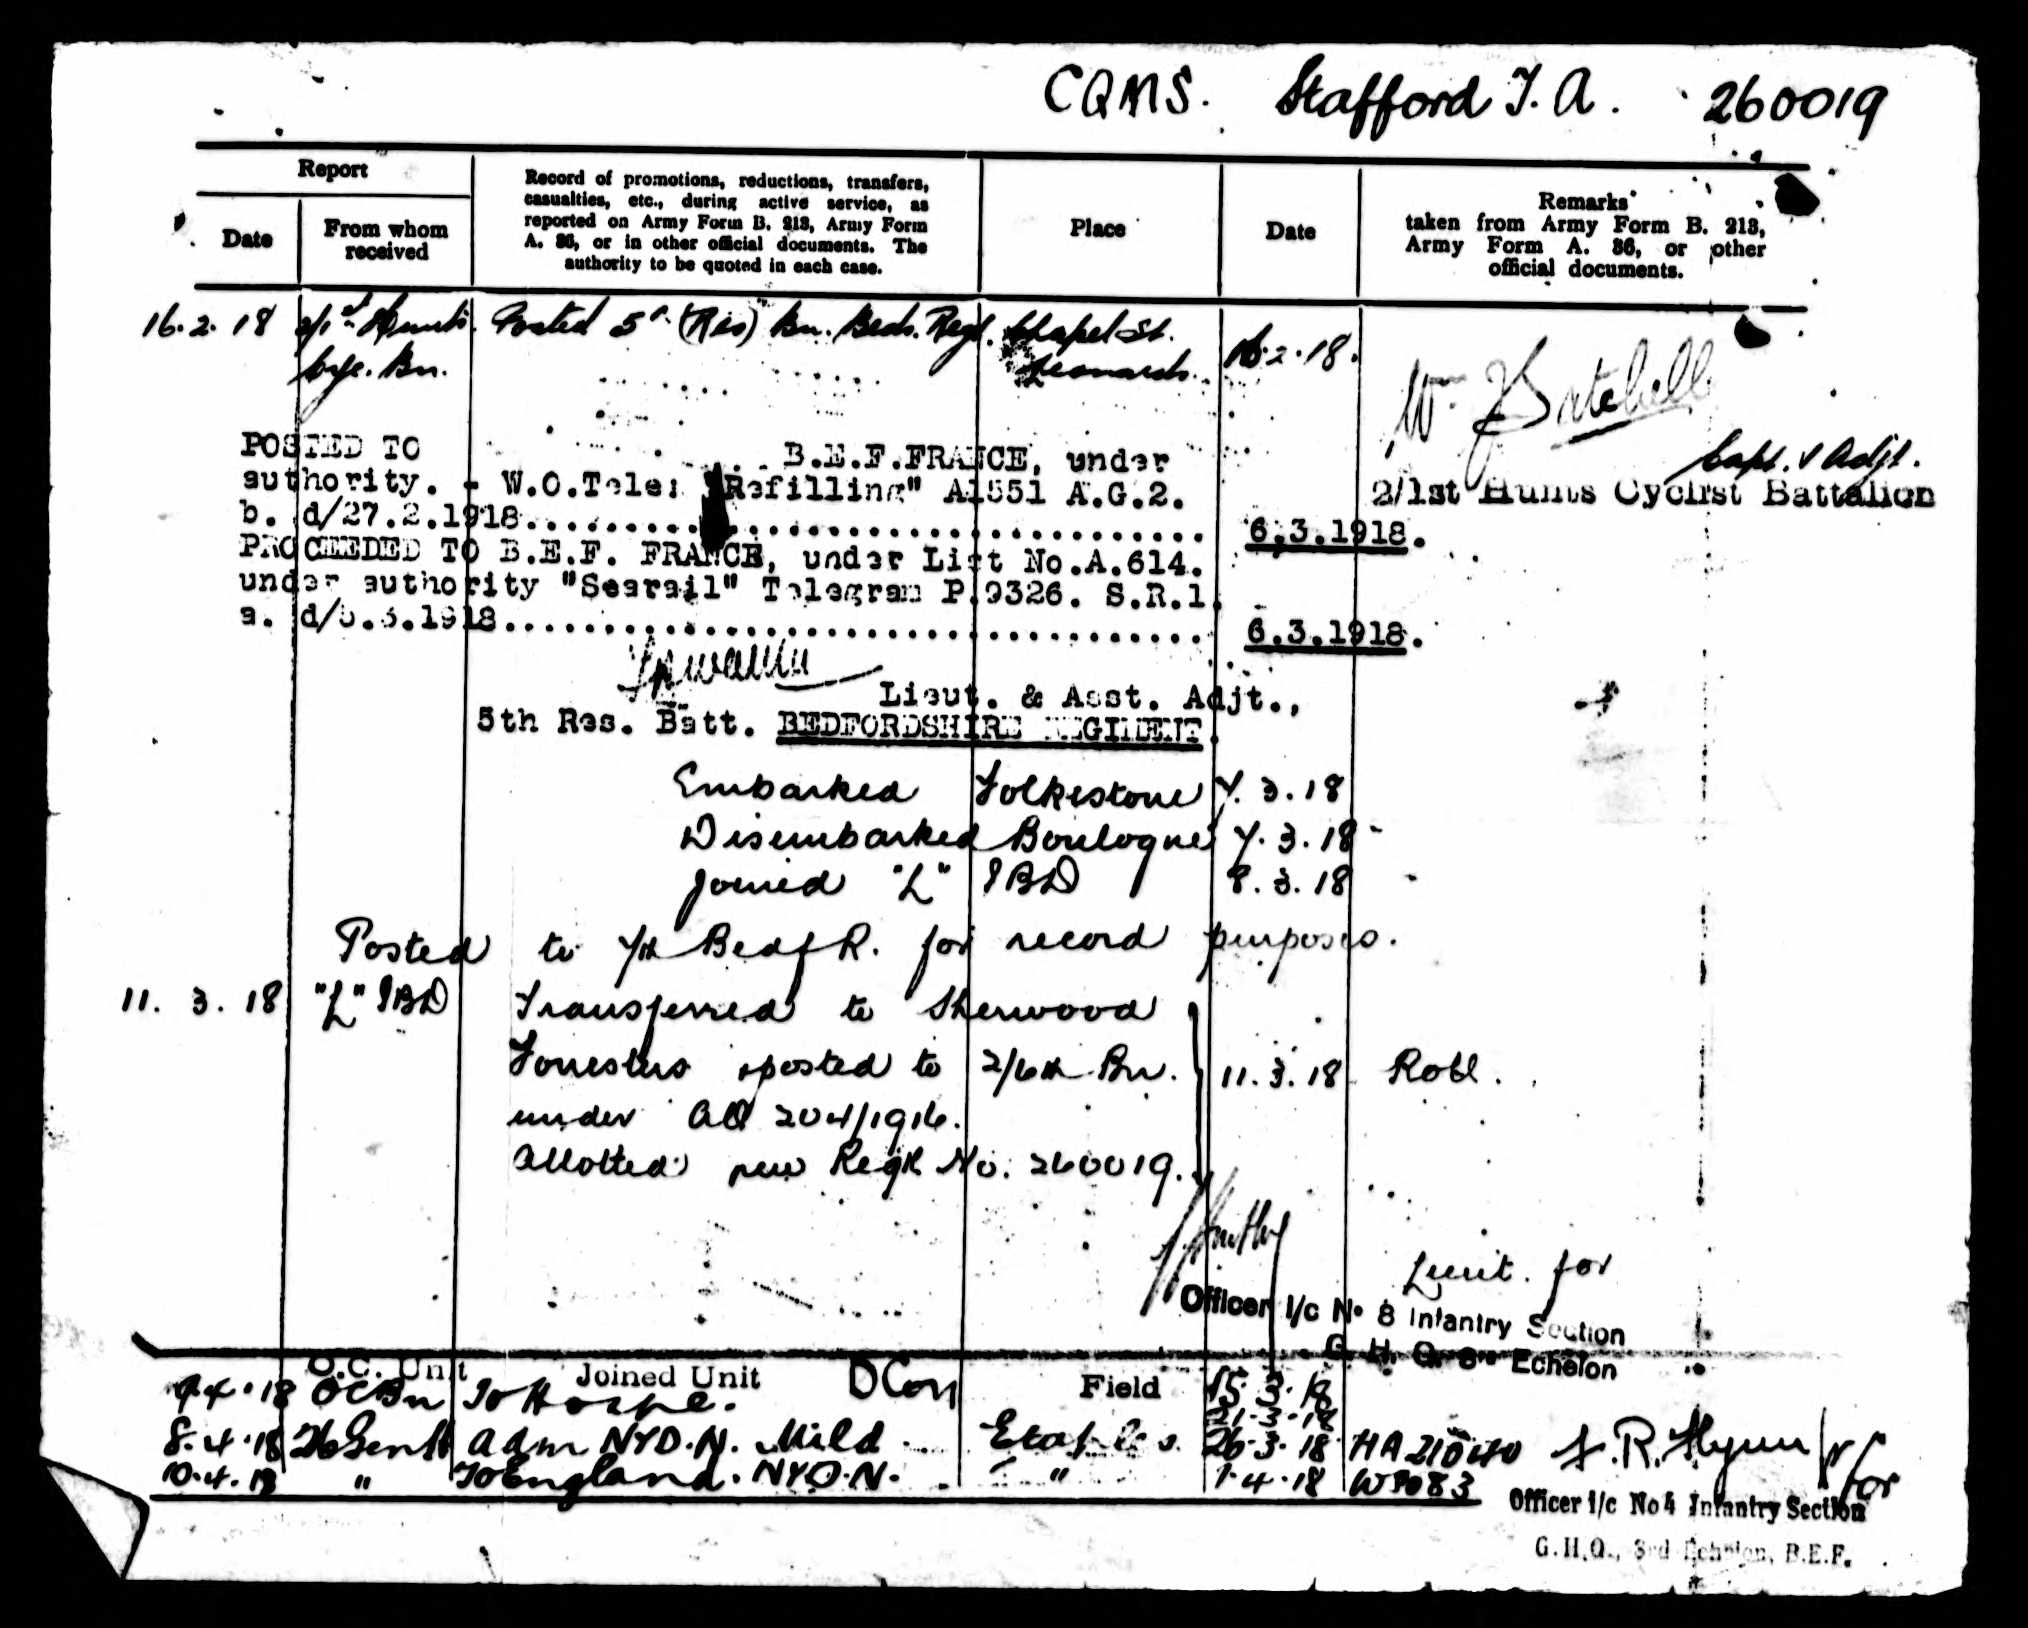 CQMS. Stafford J. A. 260019
Report
Date
From whom received
Record of promotions, reductions, transfers,
casualties, etc., during active service, as
reported on Army Form B. 213, Army Form
A. 36, or in other official documents. The
authority to be quoted in each case.
Place
Date
Remarks
taken from Army Form B. 213,
Army Form A. 36, or other
official documents.
16.2.18 2/1st Hunts. Posted 5th (Res) Bn. Beds. Regt. Chapel St. 16.2.18.
Cyc. Bn. Leonards.
Capt. & Adjt.
2/1st Hunts Cyclist Battalion
POSTED TO B.E.F.FRANCE, under
authority. - W.O.Tele: "Refilling" A1551 A.G.2.
b. d/27.2.1918.................................... 6.3.1918.
PROCEEDED TO B.E.F. FRANCE, under List No.A.614.
under authority "Searail" Telegram P.9326. S.R.1.
a. d/5.3.1918.................................... 6.3.1918.
Lieut. & Asst. Adjt.,
5th Res. Batt. BEDFORDSHIRE REGIMENT.
Embarked Folkestone 7.3.18
Disembarked Boulogne 7.3.18
Joined "L" IBD 8.3.18
Posted to 7th Bedf R. for record purposes.
11.3.18 "L" IBD Transferred to Sherwood
Forresters & posted to 2/6th Bn. 11.3.18
under AO 204/1916.
Allotted new Regtl No. 260019.
Lieut. for
Officer i/c No 8 Infantry Section
G. H. Q. 3rd Echelon
O.C. Unit Joined Unit D Coy Field 15.3.18
9.4.18 OC Bn To Hospl. 21.3.18
8.4.18 26 Genl H Adm NYD.N. Mild Etaples 26.3.18 HA 210440
10.4.18 " To England. NYD.N. " 1.4.18 W3083
for
Officer i/c No 4 Infantry Section
G.H.Q., 3rd Echelon, B.E.F.